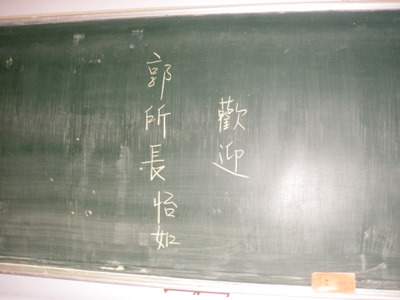 歡迎
郭所長怡如